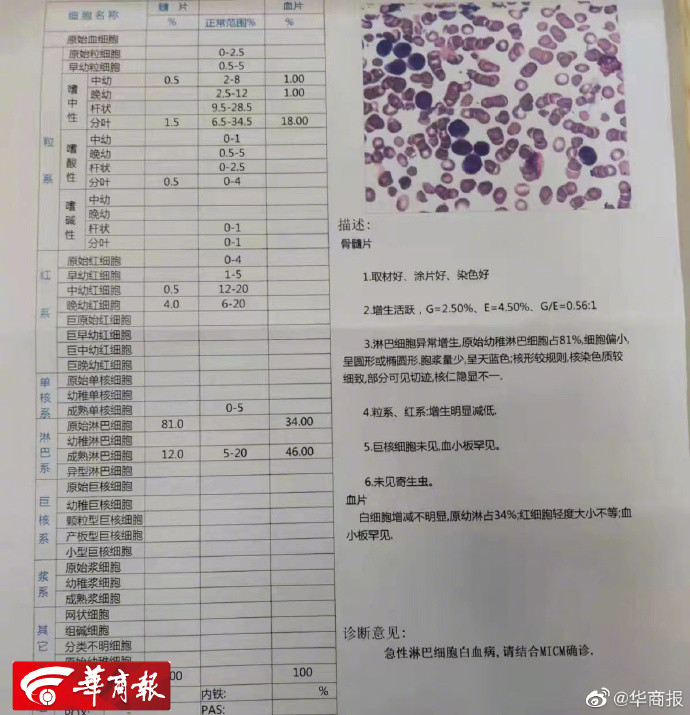 细胞名称 髓片 血片
% 正常范围% %
原始血细胞
粒系 原始粒细胞 0-2.5
早幼粒细胞 0.5-5
嗜中性 中幼 0.5 2-8 1.00
晚幼 2.5-12 1.00
杆状 9.5-28.5
分叶 1.5 6.5-34.5 18.00
嗜酸性 中幼 0-1
晚幼 0.5-5
杆状 0-2.5
分叶 0.5 0-4
嗜碱性 中幼
晚幼
杆状 0-1
分叶 0-1
红系 原始红细胞 0-4
早幼红细胞 1-5
中幼红细胞 0.5 12-20
晚幼红细胞 4.0 6-20
巨原始红细胞
巨早幼红细胞
巨中幼红细胞
巨晚幼红细胞
单核系 原始单核细胞
幼稚单核细胞
成熟单核细胞 0-5
淋巴系 原始淋巴细胞 81.0 34.00
幼稚淋巴细胞
成熟淋巴细胞 12.0 5-20 46.00
异型淋巴细胞
巨核系 原始巨核细胞
幼稚巨核细胞
颗粒型巨核细胞
产板型巨核细胞
小型巨核细胞
浆系 原始浆细胞
幼稚浆细胞
成熟浆细胞
其它 网状细胞
组碱细胞
分类不明细胞
00 100
内铁: %
PAS:
描述:
骨髓片
1.取材好、涂片好、染色好
2.增生活跃，G=2.50%、E=4.50%、G/E=0.56:1
3.淋巴细胞异常增生,原始幼稚淋巴细胞占81%,细胞偏小,
呈圆形或椭圆形.胞浆量少,呈天蓝色;核形较规则,核染色质较
细致,部分可见切迹,核仁隐显不一.
4.粒系、红系:增生明显减低.
5.巨核细胞未见,血小板罕见。
6.未见寄生虫。
血片
白细胞增减不明显,原幼淋占34%;红细胞轻度大小不等;血
小板罕见。
诊断意见:
急性淋巴细胞白血病,请结合MICM确诊.
华商报
@华商报